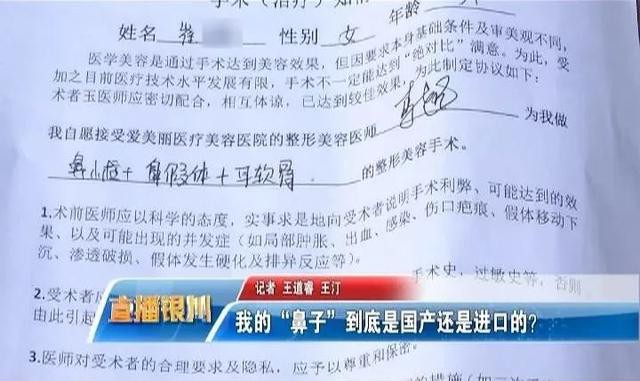 手术（治疗）知情
姓名 性别 女 年龄
医学美容是通过手术达到美容效果，但因要求本身基础条件及审美观不同，
加之目前医疗技术水平发展有限，手术不一定能达到“绝对比”满意。为此，受
术者玉医师应密切配合，相互体谅，已达到较佳效果，为此制定协议如下：
我自愿接受爱美丽医疗美容医院的整形美容医师 为我做
鼻小柱+鼻假体+耳软骨 的整形美容手术。
1.术前医师应以科学的态度，实事求是地向受术者说明手术利弊、可能达到的效
果、以及可能出现的并发症（如局部肿胀、出血、感染、伤口疤痕、假体移动下
沉、渗透破损、假体发生硬化及排异反应等）。
2.受术者 手术史，过敏史等，否则
由此引起
记者 王道睿 王汀
直播银川
我的“鼻子”到底是国产还是进口的？
3.医师对受术者的合理要求及隐私，应予以尊重和保密。
的措施